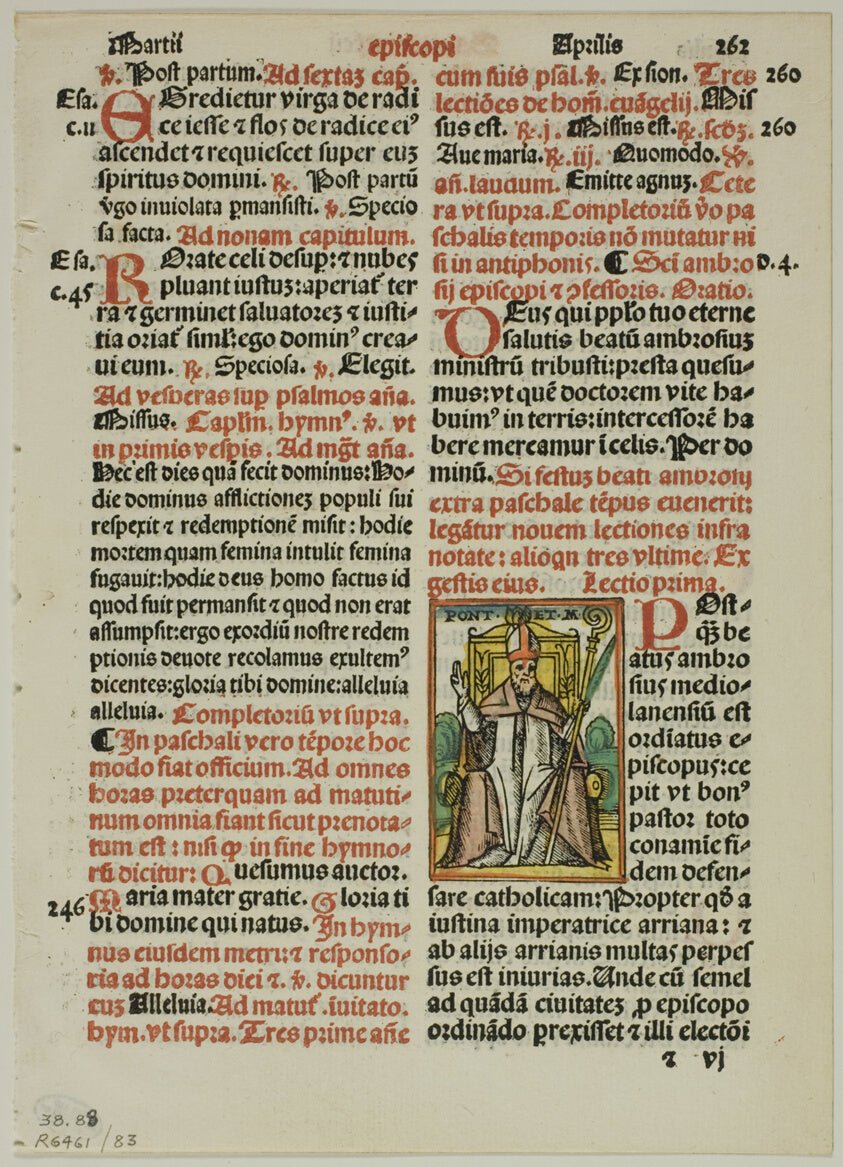 Martii episcopi Aprilis 262
℣. Post partum. Ad sextaʒ cap̄.
Esa. EGredietur virga de radi
c.11 ce iesse ⁊ flos de radice eiꝰ
ascendet ⁊ requiescet super euʒ
spiritus domini. ℟. Post partū
v̄go inuiolata ꝑmansisti. ℣. Specio
sa facta. Ad nonam capitulum.
Esa. ROrate celi desuꝑ: ⁊ nubes
c.45 pluant iustuʒ: aperiat̄ ter
ra ⁊ germinet saluatoreʒ ⁊ iusti-
tia oriat̄ siml̄: ego dominꝰ crea-
ui eum. ℟. Speciosa. ℣. Elegit.
Ad vesperas suꝑ psalmos aña.
Missus. Capl̄m. hymnꝰ. ℣. vt
in primis vesp̄is. Ad mḡt aña.
Hec est dies quā fecit dominus: Ho-
die dominus afflictioneʒ populi sui
respexit ⁊ redemptionē misit: hodie
mortem quam femina intulit femina
fugauit: hodie deus homo factus id
quod fuit permansit ⁊ quod non erat
assumpsit: ergo exordiū nostre redem
ptionis deuote recolamus exultemꝰ
dicentes: gloria tibi domine: alleluia
alleluia. Completoriū vt supra.
¶ In paschali vero tēpore hoc
modo fiat officium. Ad omnes
horas preterquam ad matuti-
num omnia fiant sicut prenota-
tum est: nisi ꝙ in fine hymno-
rū dicitur: Quesumus auctor.
246 Maria mater gratie. Gloria ti
bi domine qui natus. In hym-
nus eiusdem metri: ⁊ responso-
ria ad horas diei ⁊. ℣. dicuntur
cuʒ Alleluia. Ad matut̄. īuitato.
hym. vt supra. Tres prime añe
cum suis psal. ℣. Ex sion. Tres 260
lectiōes de hom̄. euāgelij. Mis
sus est. ℟. j. Missus est. ℟. scd̄ʒ. 260
Aue maria. ℟. iij. Quomodo. ℣.
añ. laudum. Emitte agnuʒ. Cete
ra vt supra. Completoriū v̄o pa
schalis temporis nō mutatur ni
si in antiphonis. ¶ Sc̄i ambro D. 4.
sij episcopi ⁊ ꝯfessoris. Oratio.
DEus qui pp̄lo tuo eterne
salutis beatū ambrosiuʒ
ministrū tribuisti: presta quesu-
mus: vt quē doctorem vite ha-
buimꝰ in terris: intercessorē ha
bere mereamur ī celis. Per do
minū. Si festuʒ beati ambrosij
extra paschale tēpus euenerit:
legātur nouem lectiones infra
notate: alioqn tres vltime. Ex
gestis eius. Lectio prima.
PONT. ET. M.
POst-
q̄ʒ be
atus ambro
sius medio-
lanensiū est
ordīatus e-
piscopus: ce
pit vt bonꝰ
pastor toto
conamīe fi-
dem defen-
sare catholicam: Propter qd̄ a
iustina imperatrice arriana: ⁊
ab alijs arrianis multas perpes
sus est iniurias. Unde cū semel
ad quādā ciuitateʒ ꝓ episcopo
ordinādo ꝑrexisset ⁊ illi electōi
⁊ vj
38.88
R6461/83